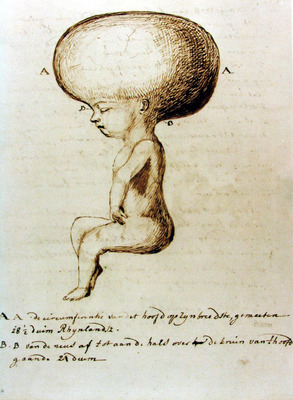 A A
B
B
A A de circumferentie van het hoofd op zyn breedste, gemeeten
28 1/2 duim Rhynlands.
B. B van de neus af tot aan de hals over de kruin van 't hoofd
gaande 21 duim